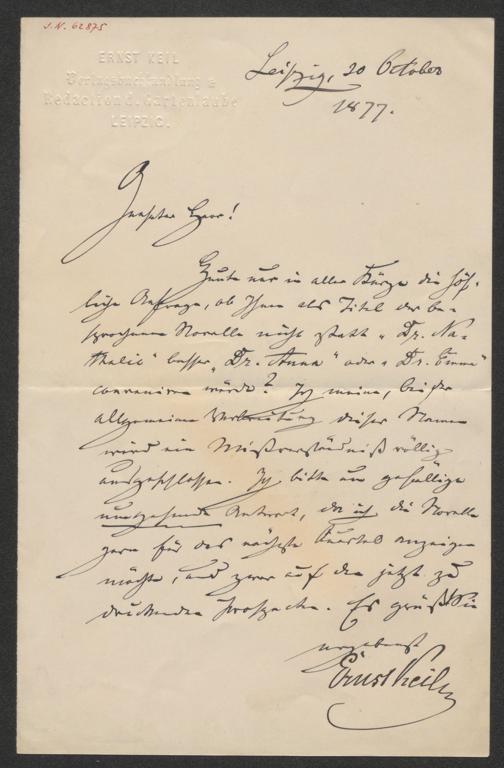 J.N. 62875
ERNST KEIL
Verlagsbuchhandlung &
Redaction d. Gartenlaube
LEIPZIG.
Leipzig, 20 October
1877.
Geehrter Herr!
Heute nur in aller Kürze die höf-
liche Anfrage, ob Ihnen als Titel der be-
sprochenen Novelle nicht statt „Dr. Na-
thalie“ besser „Dr. Anna“ oder „Dr. Emma“
conveniren würde? Ich meine, bei der
allgemeinen Verbreitung dieser Namen
wird ein Mißverständniß völlig
ausgeschlossen. Ich bitte um gefällige
umgehende Antwort, da ich die Novelle
gern für das nächste Quartal anzeigen
möchte, und zwar auf den jetzt zu
druckenden Prospecten. Es grüßt Sie
ergebenst
Ernst Keil